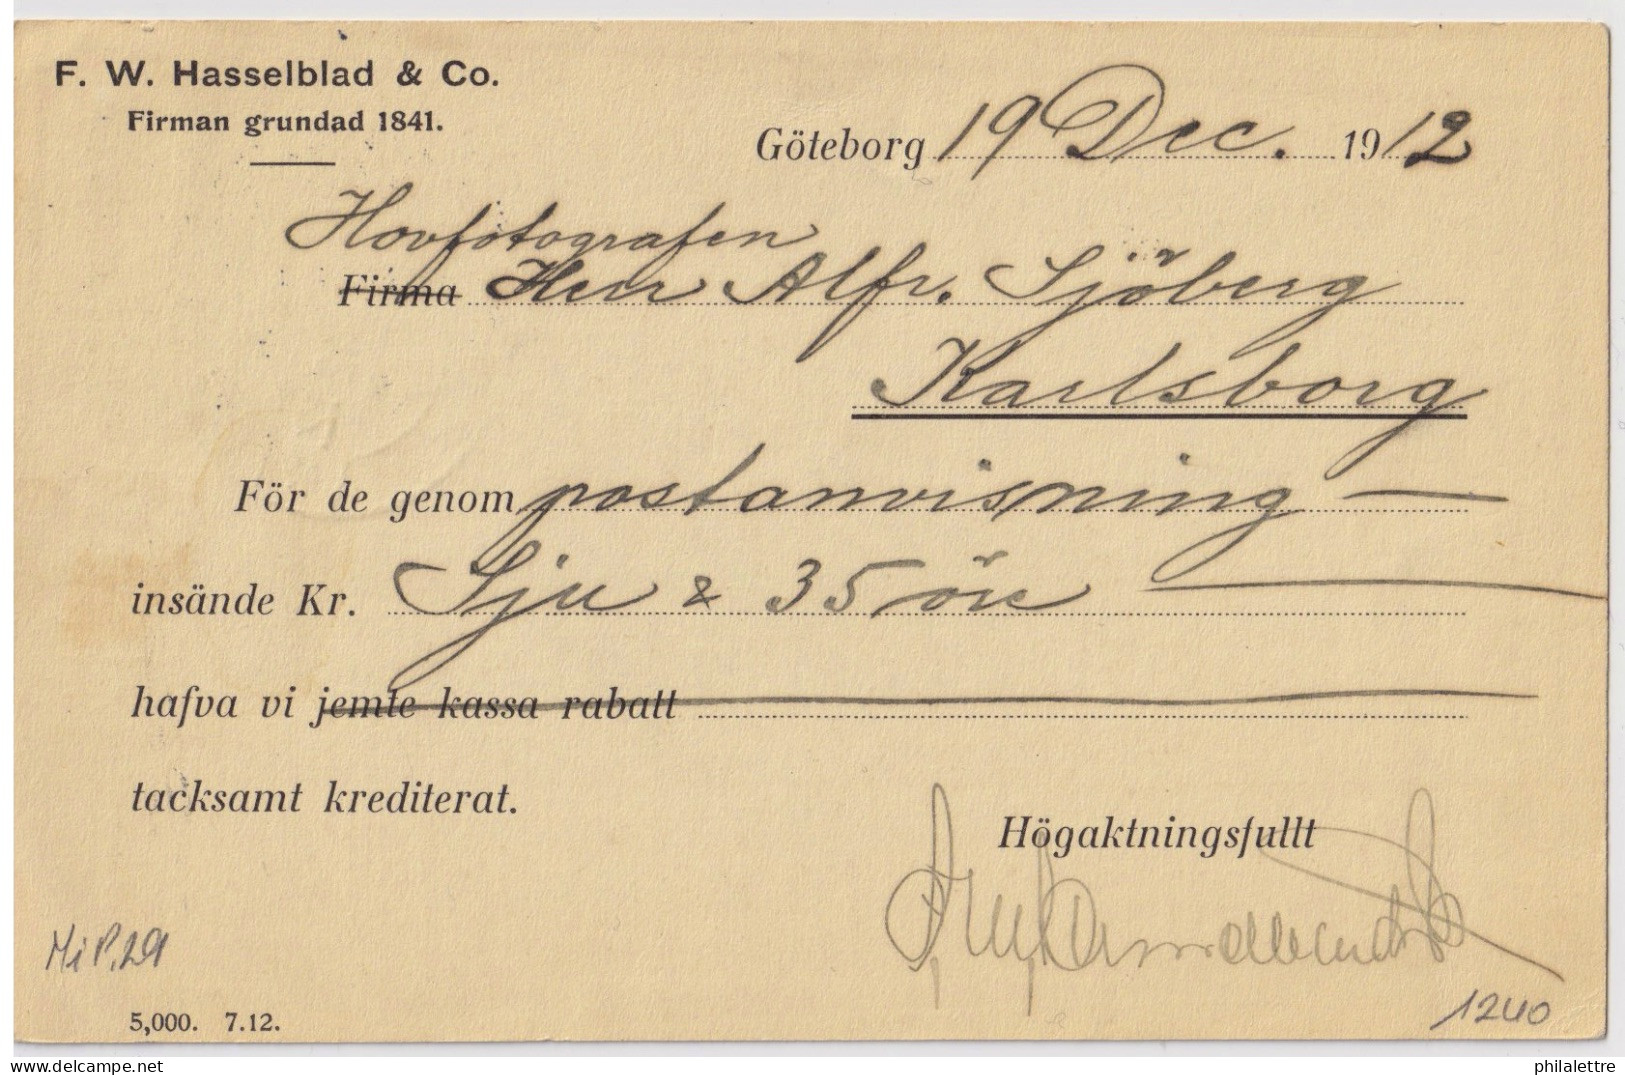 F. W. Hasselblad & Co.
Firman grundad 1841.
Göteborg 19 Dec. 1912
Hovfotografen
Firma Herr Alfr. Sjöberg
Karlsborg
För de genom postanvisning —
insände Kr. Sju & 35 öre —
hafva vi jemte kassa rabatt
tacksamt krediterat.
Högaktningsfullt
Mi P.29
1240
5,000. 7.12.
philalettre